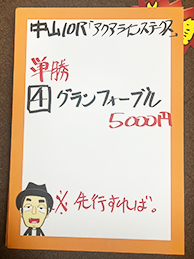 中山10R「アクアラインステークス」
単勝
4 グランフォーブル
5000円
※先行すれば。